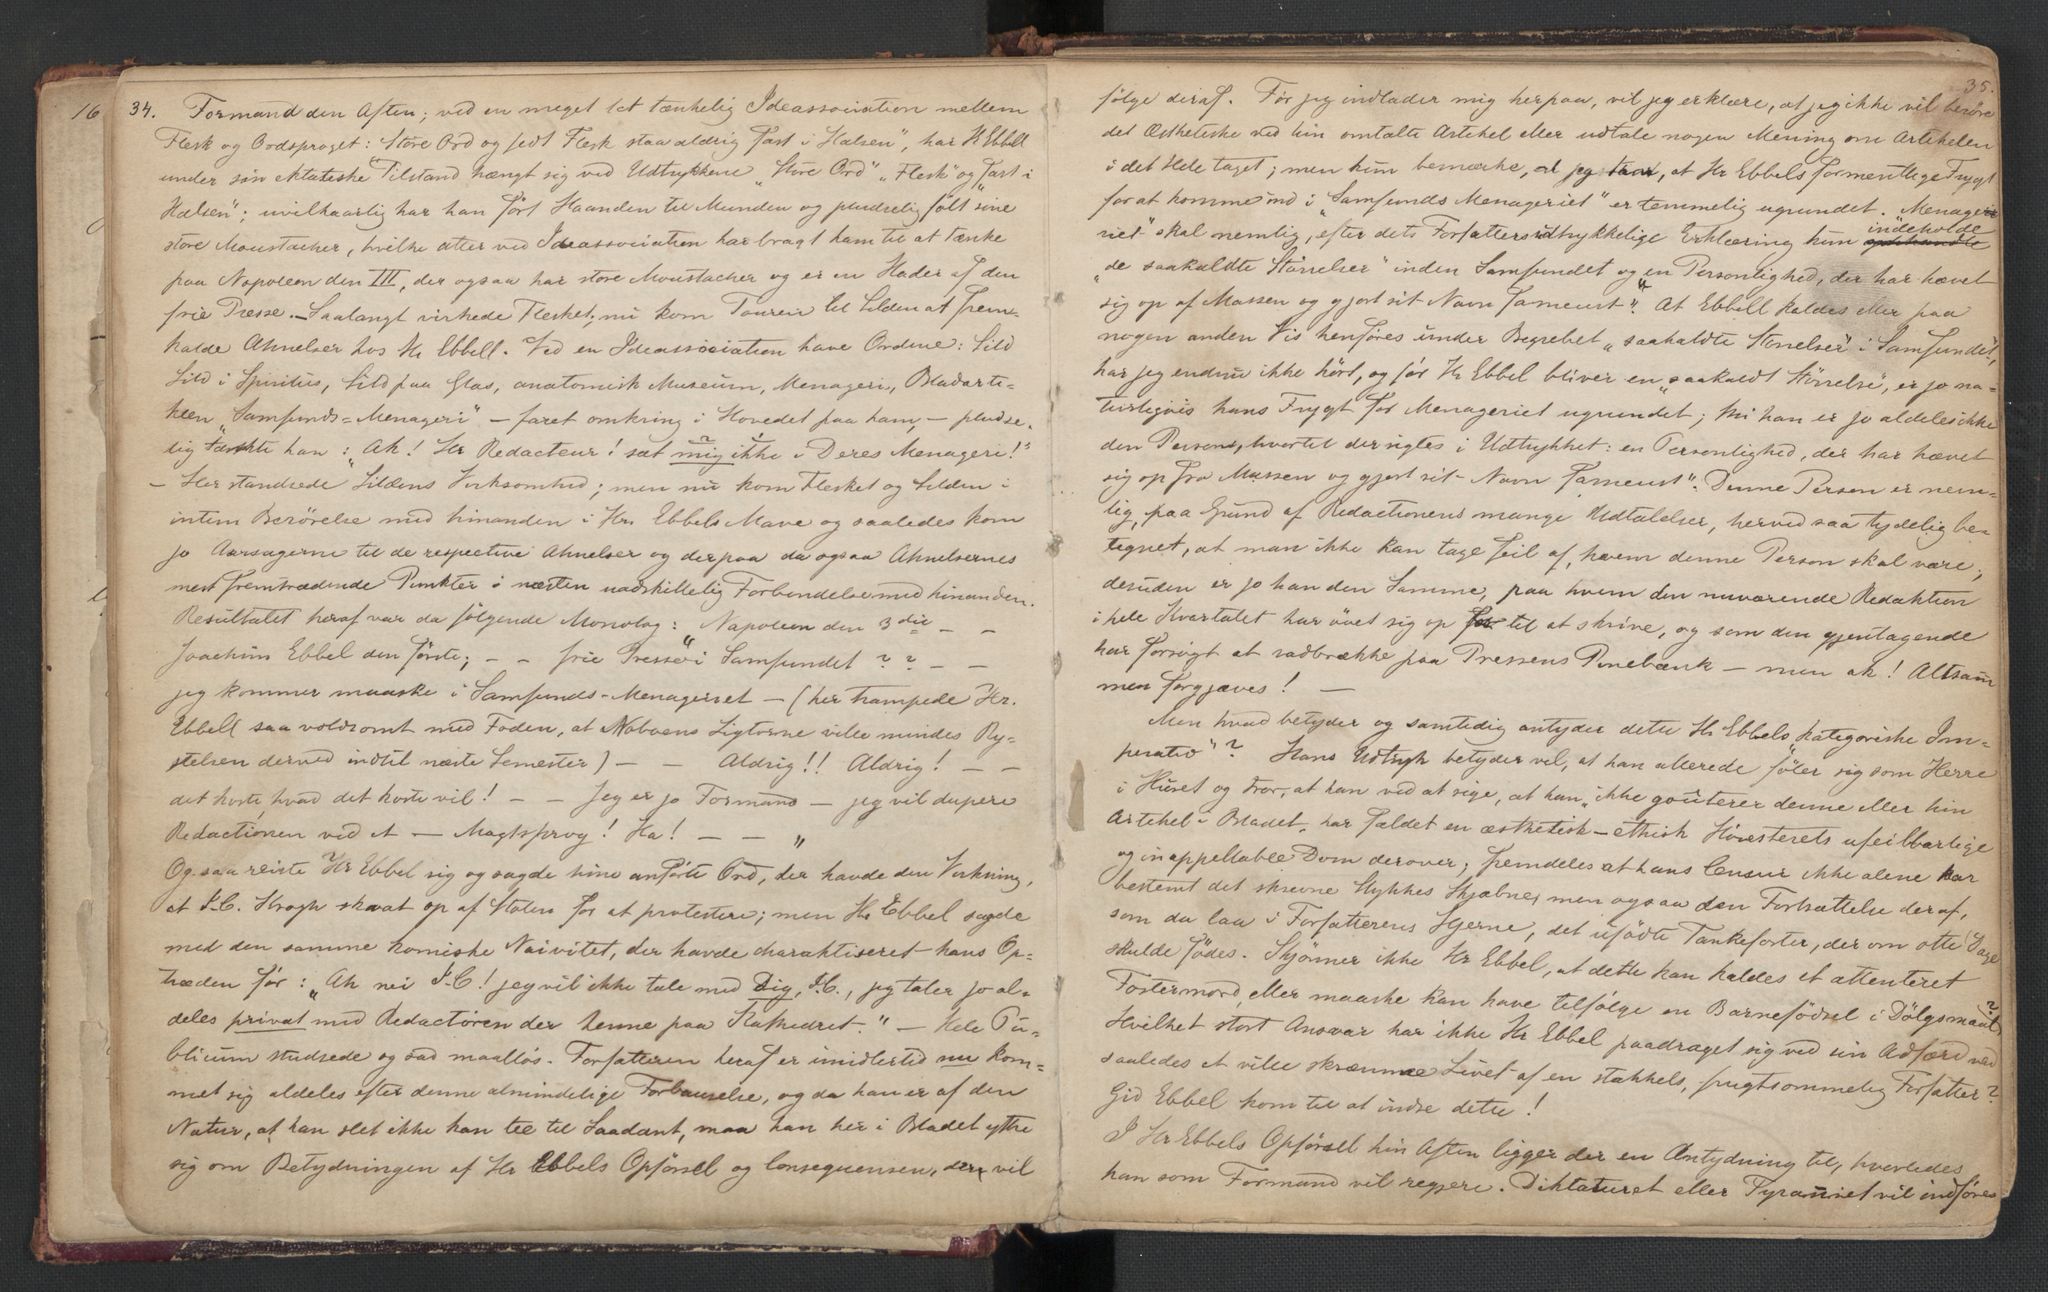 16
34.
Formand den Aften; ved en meget let tænkelig Ideassociation mellem
Flesk og Ordsproget: "Store Ord og fedt Flesk staa aldrig fast i Halsen", har H Ebbell
under sin ektatiske Tilstand hængt sig ved Udtrykkene "Store Ord" "Flesk" og "Fast i
Halsen"; uvilkaarlig har han ført Haanden til Munden og pludselig følt sine
store Moustacher, hvilke atter ved Ideassociation har bragt ham til at tænke
paa Napoleon den III, der ogsaa har store Moustacher og er en Hader af den
frie Presse. – Saalangt virkede Flesket; nu kom Touren til Silden at frem-
kalde Ahnelser hos Hr Ebbell. Ved en Ideassociation have Ordene: Sild
Sild i Spiritus, Sild paa Glas, anatomisk Museum, Menageri, Bladarti-
klen "Samfunds=Menageri" – faret omkring i Hovedet paa ham, – pludse-
lig tænkte han: "Ak! Hr Redacteur! sæt mig ikke i Deres Menageri!"
– Her standsede Sildens Virksomhed; men nu kom Flesket og Silden i
intim Berørelse med hinanden i Hr. Ebbels Mave og saaledes kom
jo Aarsagerne til de respective Ahnelser og derpaa da ogsaa Ahnelsernes
mest fremtrædende Punkter i næsten uadskillelig Forbindelse med hinanden.
Resultatet heraf var da følgende Monolog: "Napoleon den 3die – –
Joachim Ebbel den første; – – frie Presse i Samfundet ? ? – –
jeg kommer maaske i Samfunds-Menageriet – (her trampede Hr.
Ebbell saa voldsomt med Foden, at Naboens Ligtorne ville mindes Ry-
stelsen derved indtil næste Semester) – – Aldrig!! Aldrig! – –
det koste hvad det koste vil! – – Jeg er jo Formand – jeg vil dupere
Redactionen ved et – Magtsprog! Ha! – – "
Og saa reiste Hr Ebbel sig og sagde hine anførte Ord, der havde den Virkning,
at I.C. Krogh skvat op af Stolen for at protestere; men Hr Ebbel sagde
med den samme komiske Naivitet, der havde charaktiseret hans Op-
træden før: "Ak nei I.C! jeg vil ikke tale med Dig, I.C., jeg taler jo al-
deles privat med Redactøren der henne paa Kathedret." – Hele Pu-
blicum studsede og sad maalløs. Forfatteren heraf er imidlertid nu kom-
met sig aldeles efter denne almindelige Forbauselse, og da han er af den
Natur, at han slet ikke kan tie til Saadant, maa han her i Bladet yttre
sig om Betydningen af Hr Ebbels Opførsel og Consequensen, der vil
35.
følge deraf. Før jeg indlader mig herpaa, vil jeg erklære, at jeg ikke vil berøre
det Æsthetiske ved hin omtalte Artikel eller udtale nogen Mening om Artikelen
i det Hele taget; men kun bemærke, at Hr Ebbels formentlige Frygt
for at komme ind i "Samfunds Menageriet" er temmelig ugrundet. "Menage-
riet" skal nemlig, efter dets Forfatters udtrykkelige Erklæring kun indeholde
"de saakaldte Størrelser" inden Samfundet og "en Personlighed, der har hævet
sig op af Massen og gjort sit Navn famøust". At Ebbell kaldes eller paa
nogen anden Vis henføres under Begrebet "saakaldte Størrelser" i Samfundet,
har jeg endnu ikke hört, og før Hr Ebbel bliver en "saakaldt Størrelse", er jo na-
turligvis hans Frygt for Menageriet ugrundet; thi han er jo aldeles ikke
den Person, hvortil der sigtes i Udtrykket: en Personlighed, der har hævet
sig op fra Massen og gjort sit Navn fameust". Denne Person er nem-
lig, paa Grund af Redactionens mange Udtalelser, herved saa tydelig be-
tegnet, at man ikke kan tage feil af, hvem denne Person skal være;
desuden er jo han den Samme, paa hvem den nuværende Redaktion
i hele Kvartalet har øvet sig op til at skrive, og som den gjentagende
har forsögt at radbrække paa Pressens Pinebænk – men ak! Altsam-
men forgjæves! –
Men hvad betyder og samtidig antyder dette Hr Ebbels "kategoriske Im-
perativ"? Hans Udtryk betyder vel, at han allerede føler sig som Herre
i Huset og tror, at han ved at sige, at han "ikke goûterer denne eller hin
Artikel i Bladet", har fældet en æsthetisk-ethisk Høiesterets ufeilbarlige
og inappellable Dom derover; fremdeles at hans Censur ikke alene har
bestemt det skrevne Stykkes Skjæbne, men ogsaa den Fortsættelse deraf,
som da laa i Forfatterens Hjerne, det ufødte Tankefoster, der om otte Dage
skulde fødes. Skjønner ikke Hr Ebbel, at dette kan kaldes et attenteret
Fostermord, eller maaske kan have tilfølge en Barnefødsel i Dølgsmaal?
Hvilket stort Ansvar har ikke Hr Ebbel paadraget sig ved sin Adfærd ved
saaledes at ville skræmme Livet af en stakkels, frugtsommelig Forfatter?
Gid Ebbel kom til at indse dette!
I Hr Ebbels Opførsel hin Aften ligger der en Antydning til, hvorledes
han som Formand vil regjere. Diktaturet eller Tyranniet vil indføres